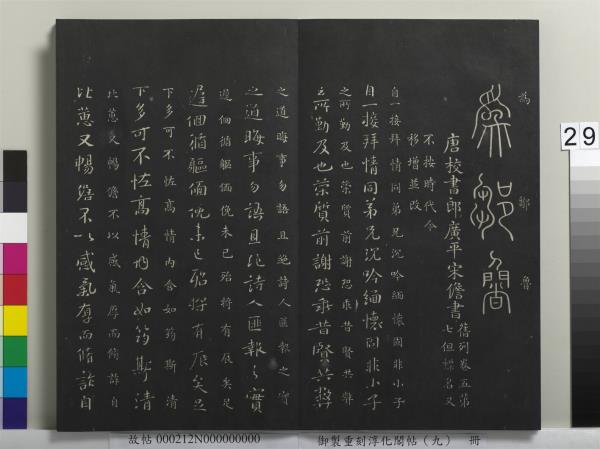 為 鄒 魯
唐校書郎廣平宋儋書
舊列卷五第
七但標名又
不按時代今
移增並改
自一接拜情同弟兄沉吟緬懷固非小子
自一接拜情同弟兄沉吟緬懷固非小子
之所勤及也榮質前謝恐乖昔賢共獘
之所勤及也榮質前謝恐乖昔賢共獘
之道晦事勿語且絕詩人匪報之實
之道晦事勿語且絕詩人匪報之實
遲徊循軀俛未已殆將有辰矣足
遲徊循軀俛未已殆將有辰矣足
下多可不恠高情內含如筠斯清
下多可不恠高情內含如筠斯清
比蕙又暢儋不以感氣厚而脩詐自
比蕙又暢儋不以感氣厚而脩詐自
29
故帖 000212N000000000
御製重刻淳化閣帖（九） 冊